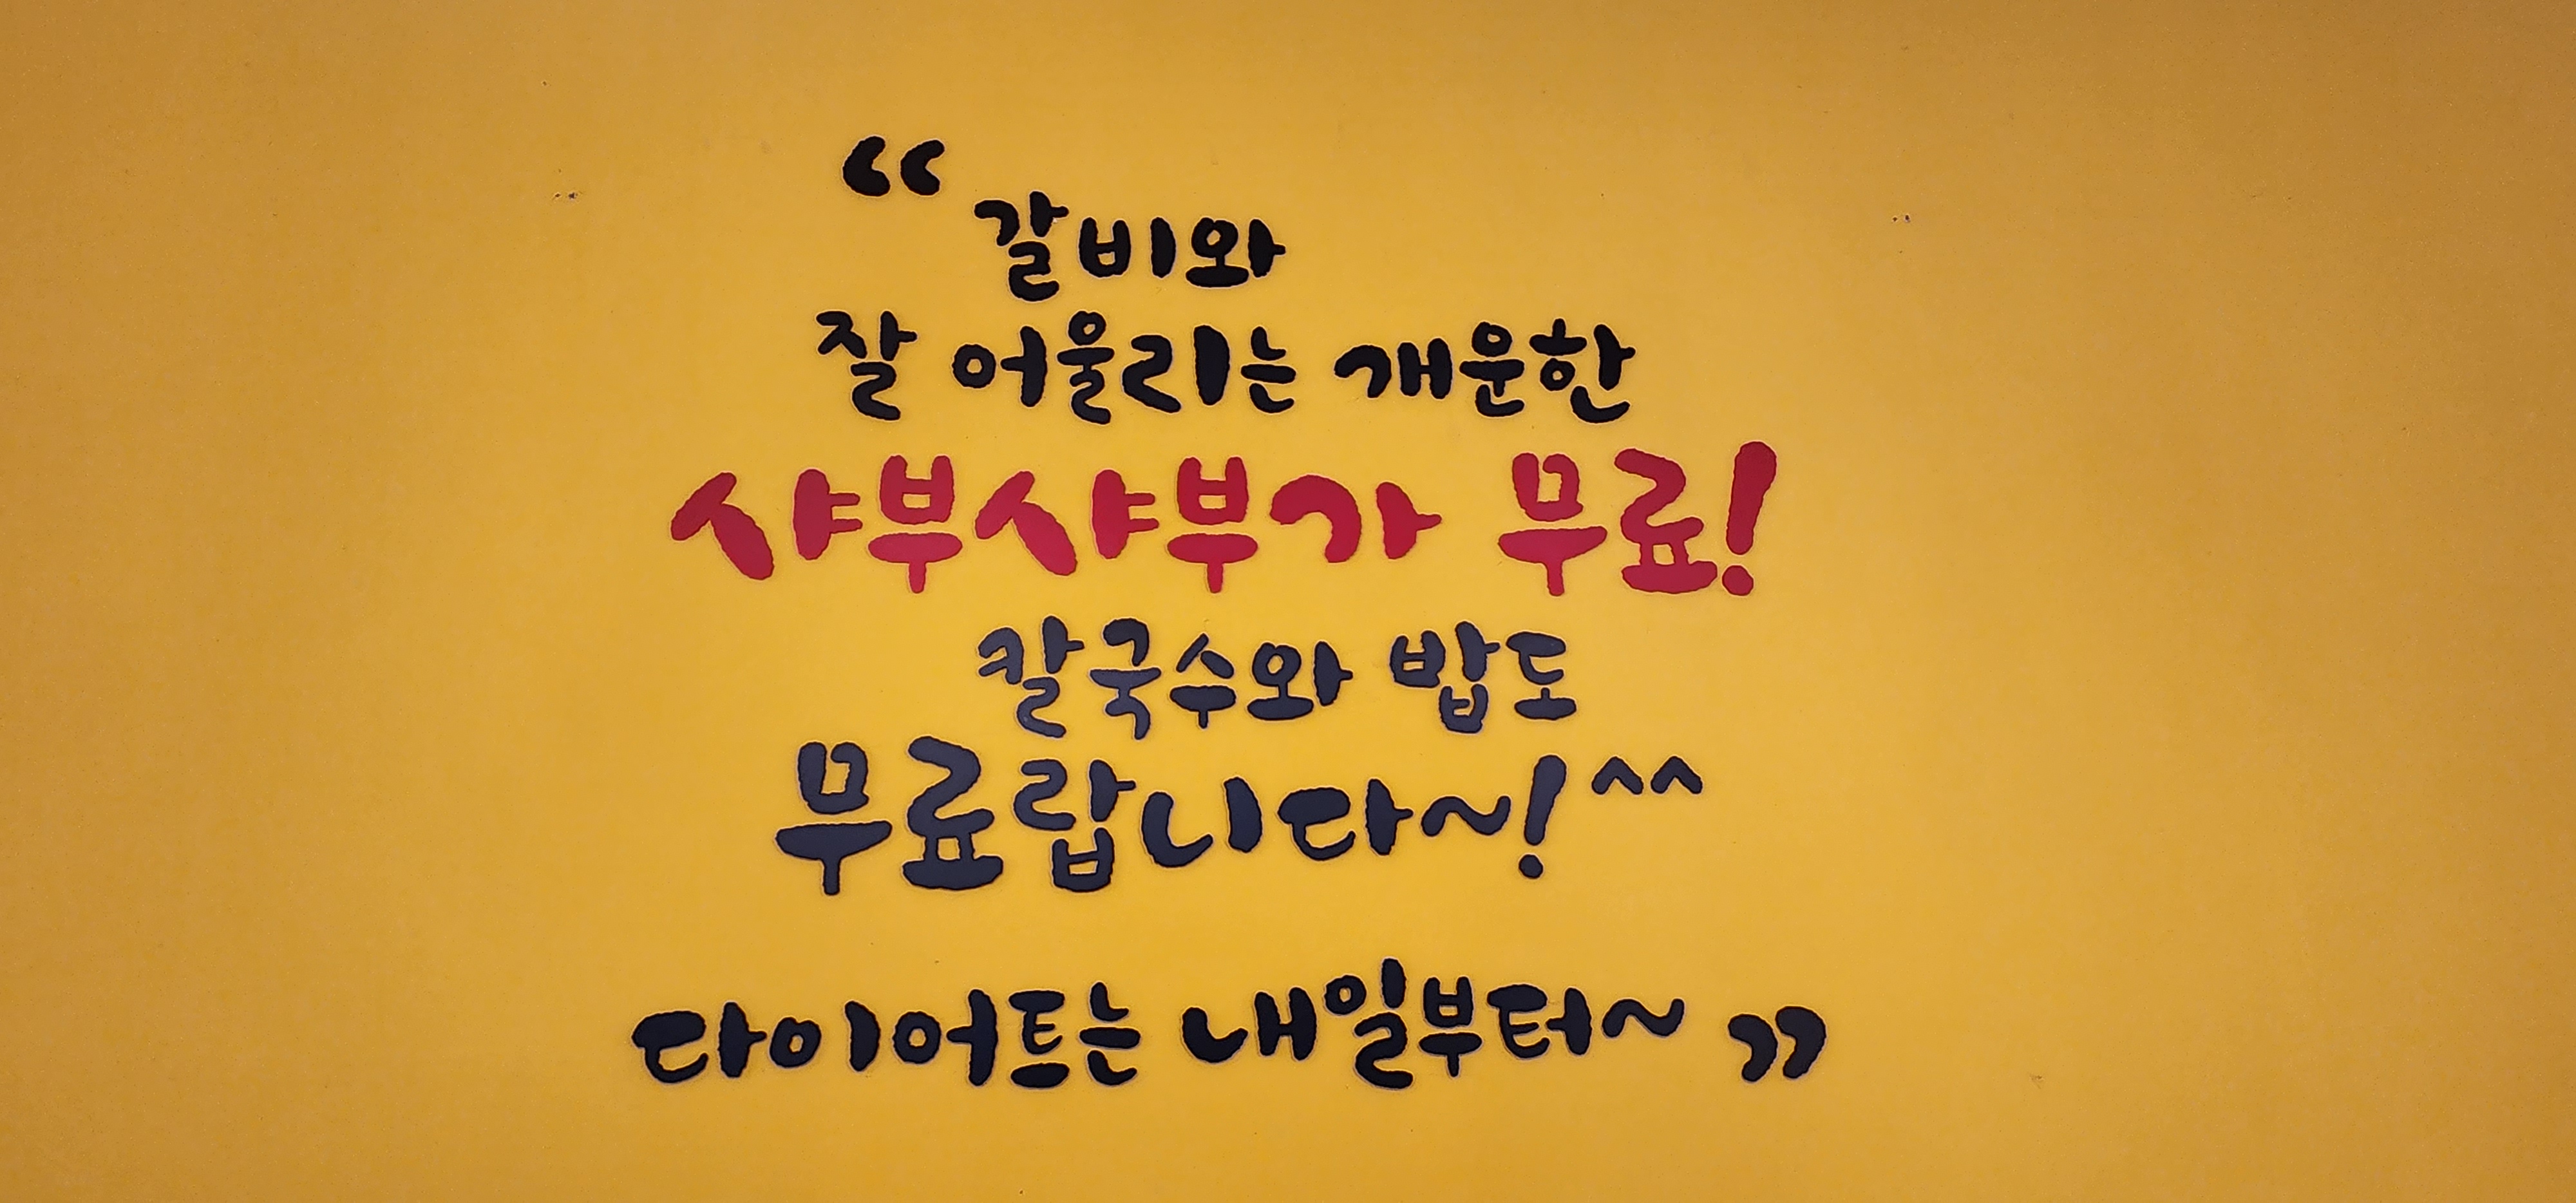 “ 갈비와
잘 어울리는 개운한
샤부샤부가 무료!
칼국수와 밥도
무료랍니다~! ^^
다이어트는 내일부터~ ”